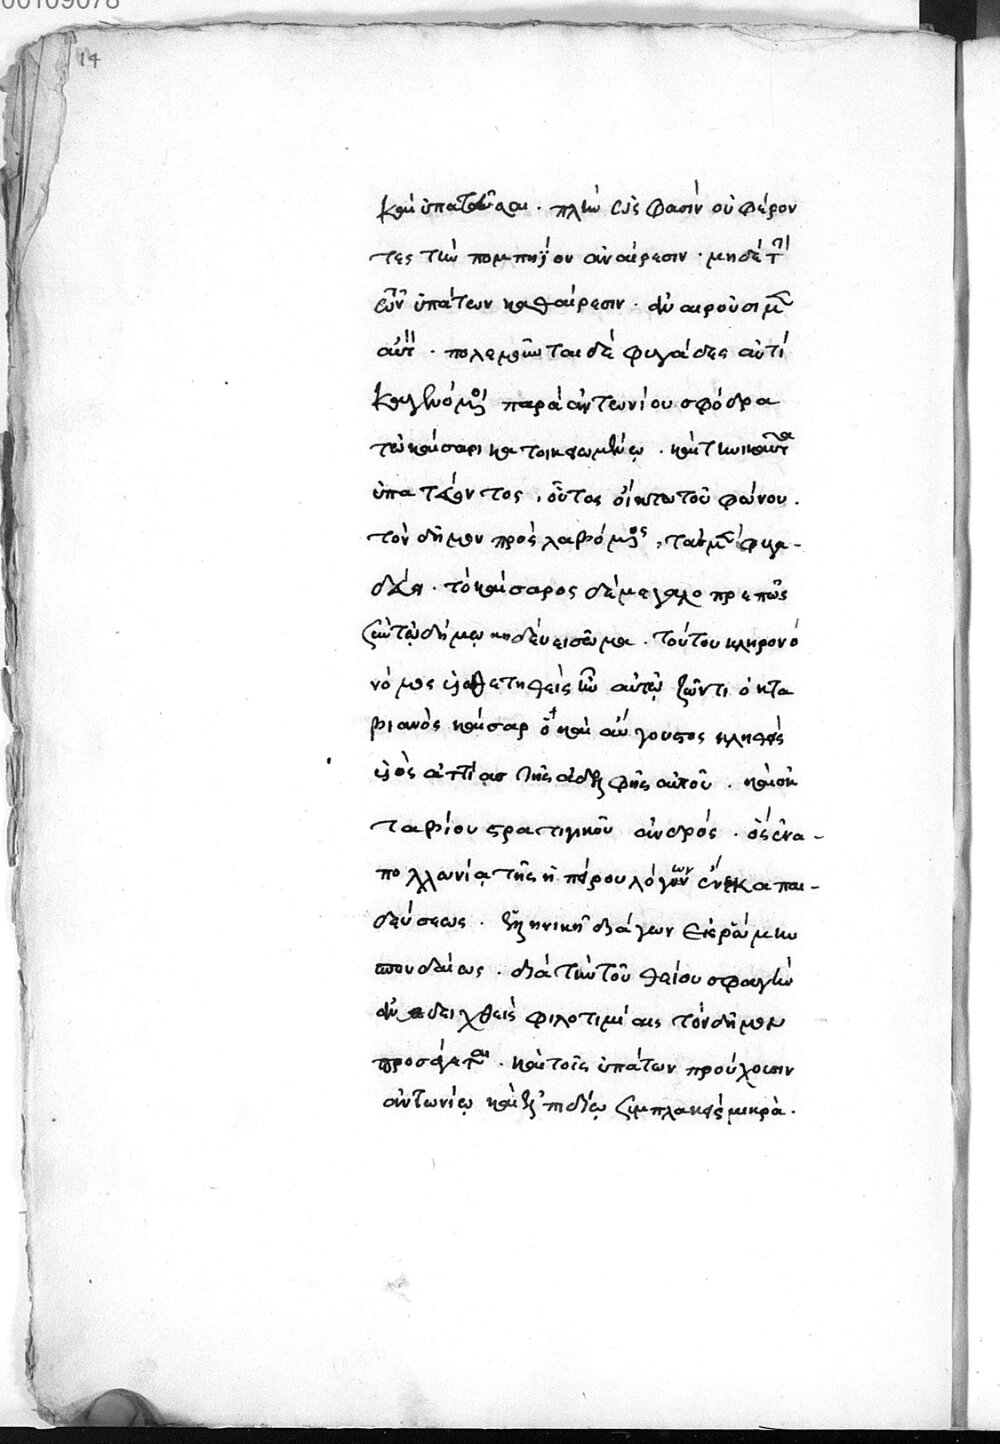 14
καὶ ὑπατεῦσαι . πλὴν ὡς φασὶν οὐ φέρον
τες τὴν πομπηΐου ἀναίρεσιν . μηδέ τ
ὧν ὑπάτων καθαίρεσιν . ἀναιροῦσι μὲν
αὐτὸν . πολεμοῦνται δὲ φυγάδες αὐτί
κα γενόμενοι παρὰ ἀντωνίου σφόδρα
τῶ καίσαρι κατοικειωμένω . καὶ τηνικαῦτα
ὑπατεύοντος , οὗτος οἴκτω τοῦ φόνου .
τὸν δῆμον προσλαβόμενος , τοὺς μὲν φυγα-
δεύει . τὸ καίσαρος δὲ μεγαλοπρεπῶς
σὺν τῷ δήμῳ κηδεύει σῶμα . τούτου κληρονό
νόμος υἱοθετηθεὶς ἦν αὐτῷ ζῶντι ὀκτα
βιανὸς καῖσαρ ὁ καὶ αὔγουστος κληθεὶς
υἱὸς ἀττίας τῆς ἀδελφῆς αὐτοῦ . καὶ ὀκ
ταβίου στρατηγικοῦ ἀνδρός . ὃς ἐν ἀ-
πολλωνίᾳ τῆς ἠπείρου λόγων ἕνεκα παι-
δεύσεως . ἑλληνικῇ διάγων
σπουδαίως . διὰ τὴν τοῦ θείου σφαγὴν
ἀναδειχθεὶς φιλοτιμίαις τὸν δῆμον
προσάγεται . καὶ τοῖς ὑπάτων προύχουσιν
ἀντωνίῳ καὶ λεπίδῳ συμπλακεὶς μικρὰ .